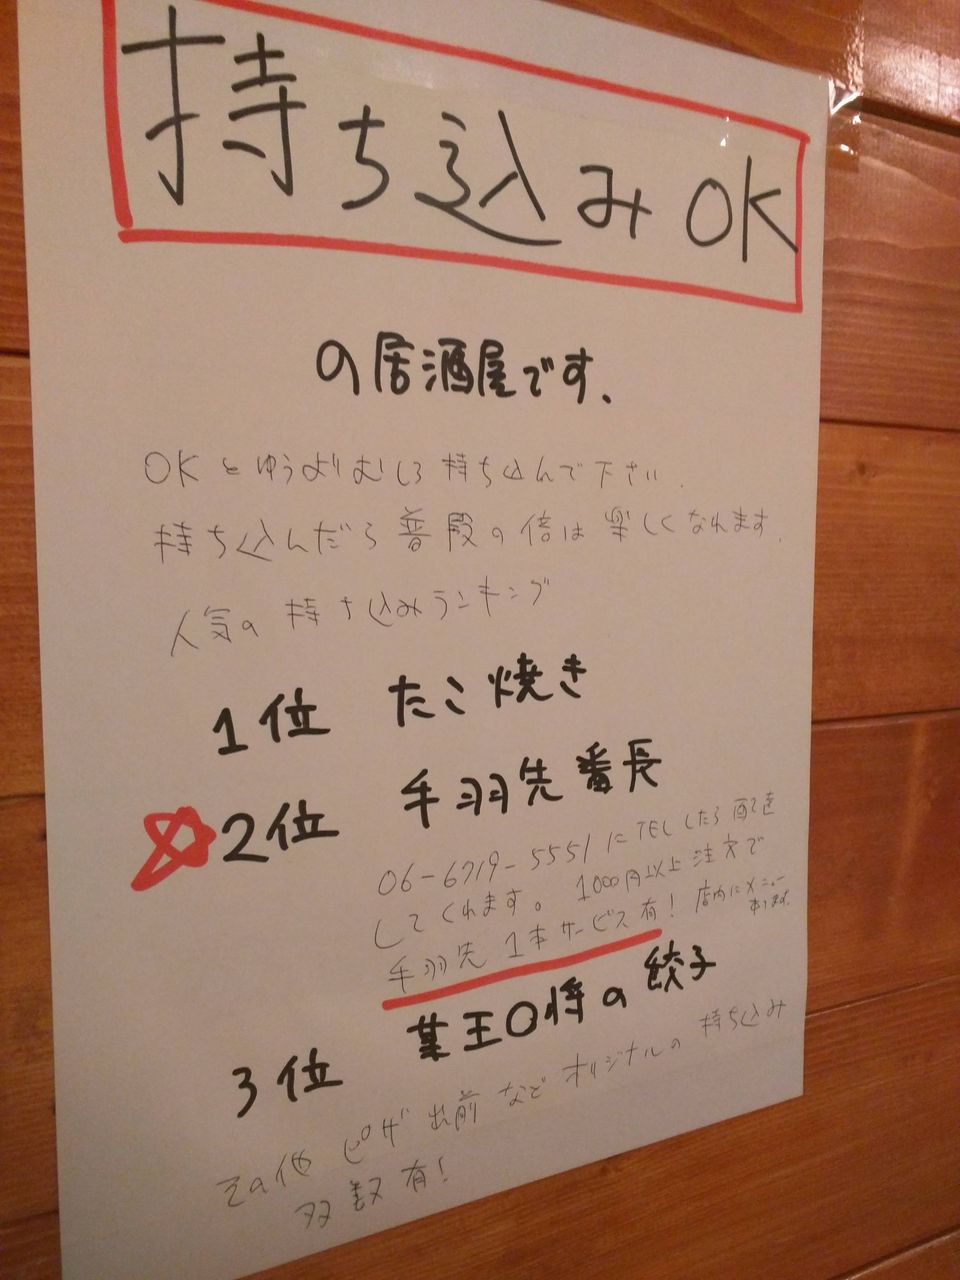 持ち込みOK
の居酒屋です、
OKとゆうよりむしろ持ち込んで下さい.
持ち込んだら普段の倍は楽しくなれます.
人気の持ち込みランキング
1位 たこ焼き
2位 手羽先番長
06-6719-5551にTELしたら配達
してくれます。1000円以上注文で
手羽先1本サービス有! 店内にメニュー
あります.
3位 某王〇将の餃子
その他 ピザ出前などオリジナルの持ち込み
多数有!